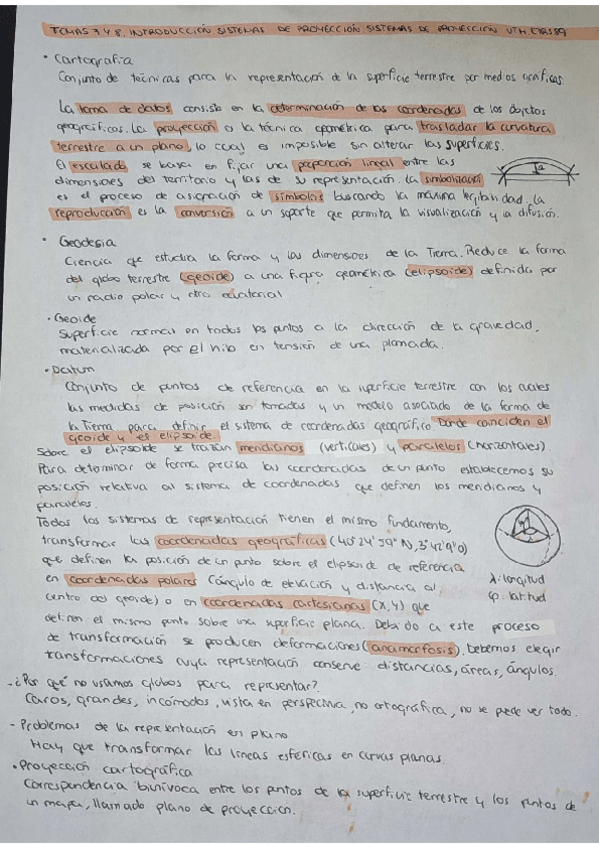 TEMAS 7 Y 8. INTRODUCCIÓN SISTEMAS DE PROYECCIÓN SISTEMAS DE PROYECCIÓN UTM ETRS89
• Cartografia
Conjunto de técnicas para la representación de la superficie terrestre por medios gráficos.
La toma de datos consiste en la determinación de las coordenadas de los objetos
geográficos. La proyección o la técnica geométrica para trasladar la curvatura
terrestre a un plano, lo cual es imposible sin alterar las superficies.
El escalado se basa en fijar una proporción lineal entre las
dimensiones del territorio y las de su representación. La simbolización
es el proceso de asignación de símbolos buscando la máxima legibilidad. La
reproducción es la conversión a un soporte que permita la visualización y la difusión.
• Geodesia
Ciencia que estudia la forma y las dimensiones de la Tierra. Reduce la forma
del globo terrestre (geoide) a una figura geométrica (elipsoide) definida por
un radio polar y otro ecuatorial
• Geoide
Superficie normal en todos los puntos a la dirección de la gravedad,
materializada por el hilo en tensión de una plomada.
• Datum
Conjunto de puntos de referencia en la superficie terrestre con los cuales
las medidas de posición son tomadas y un modelo asociado de la forma de
la Tierra para definir el sistema de coordenadas geográfico. Donde coinciden el
geoide y es elipsoide.
Sobre el elipsoide se trazan meridianos (verticales) y paralelos (horizontales).
Para determinar de forma precisa las coordenadas de un punto establecemos su
posición relativa al sistema de coordenadas que definen los meridianos y
paralelos.
Todos los sistemas de representación tienen el mismo fundamento,
transformar las coordenadas geográficas (40°24'59" N, 3°42'9" O)
que definen la posición de un punto sobre el elipsoide de referencia
en coordenadas polares (ángulo de elevación y distancia al
centro del geoide) o en coordenadas cartesianas (X,Y) que
definen el mismo punto sobre una superficie plana. Debido a este proceso
de transformación se producen deformaciones (anamorfosis). Debemos elegir
transformaciones cuya representación conserve distancias, áreas, ángulos.
λ: longitud
φ: latitud
- ¿Por qué no usamos globos para representar?
Caros, grandes, incómodos, vista en perspectiva, no ortográfica, no se puede ver todo.
- Problemas de la representación en plano
Hay que transformar las líneas esféricas en curvas planas.
• Proyección cartográfica
Correspondencia biunívoca entre los puntos de la superficie terrestre y los puntos de
un mapa, llamado plano de proyección.